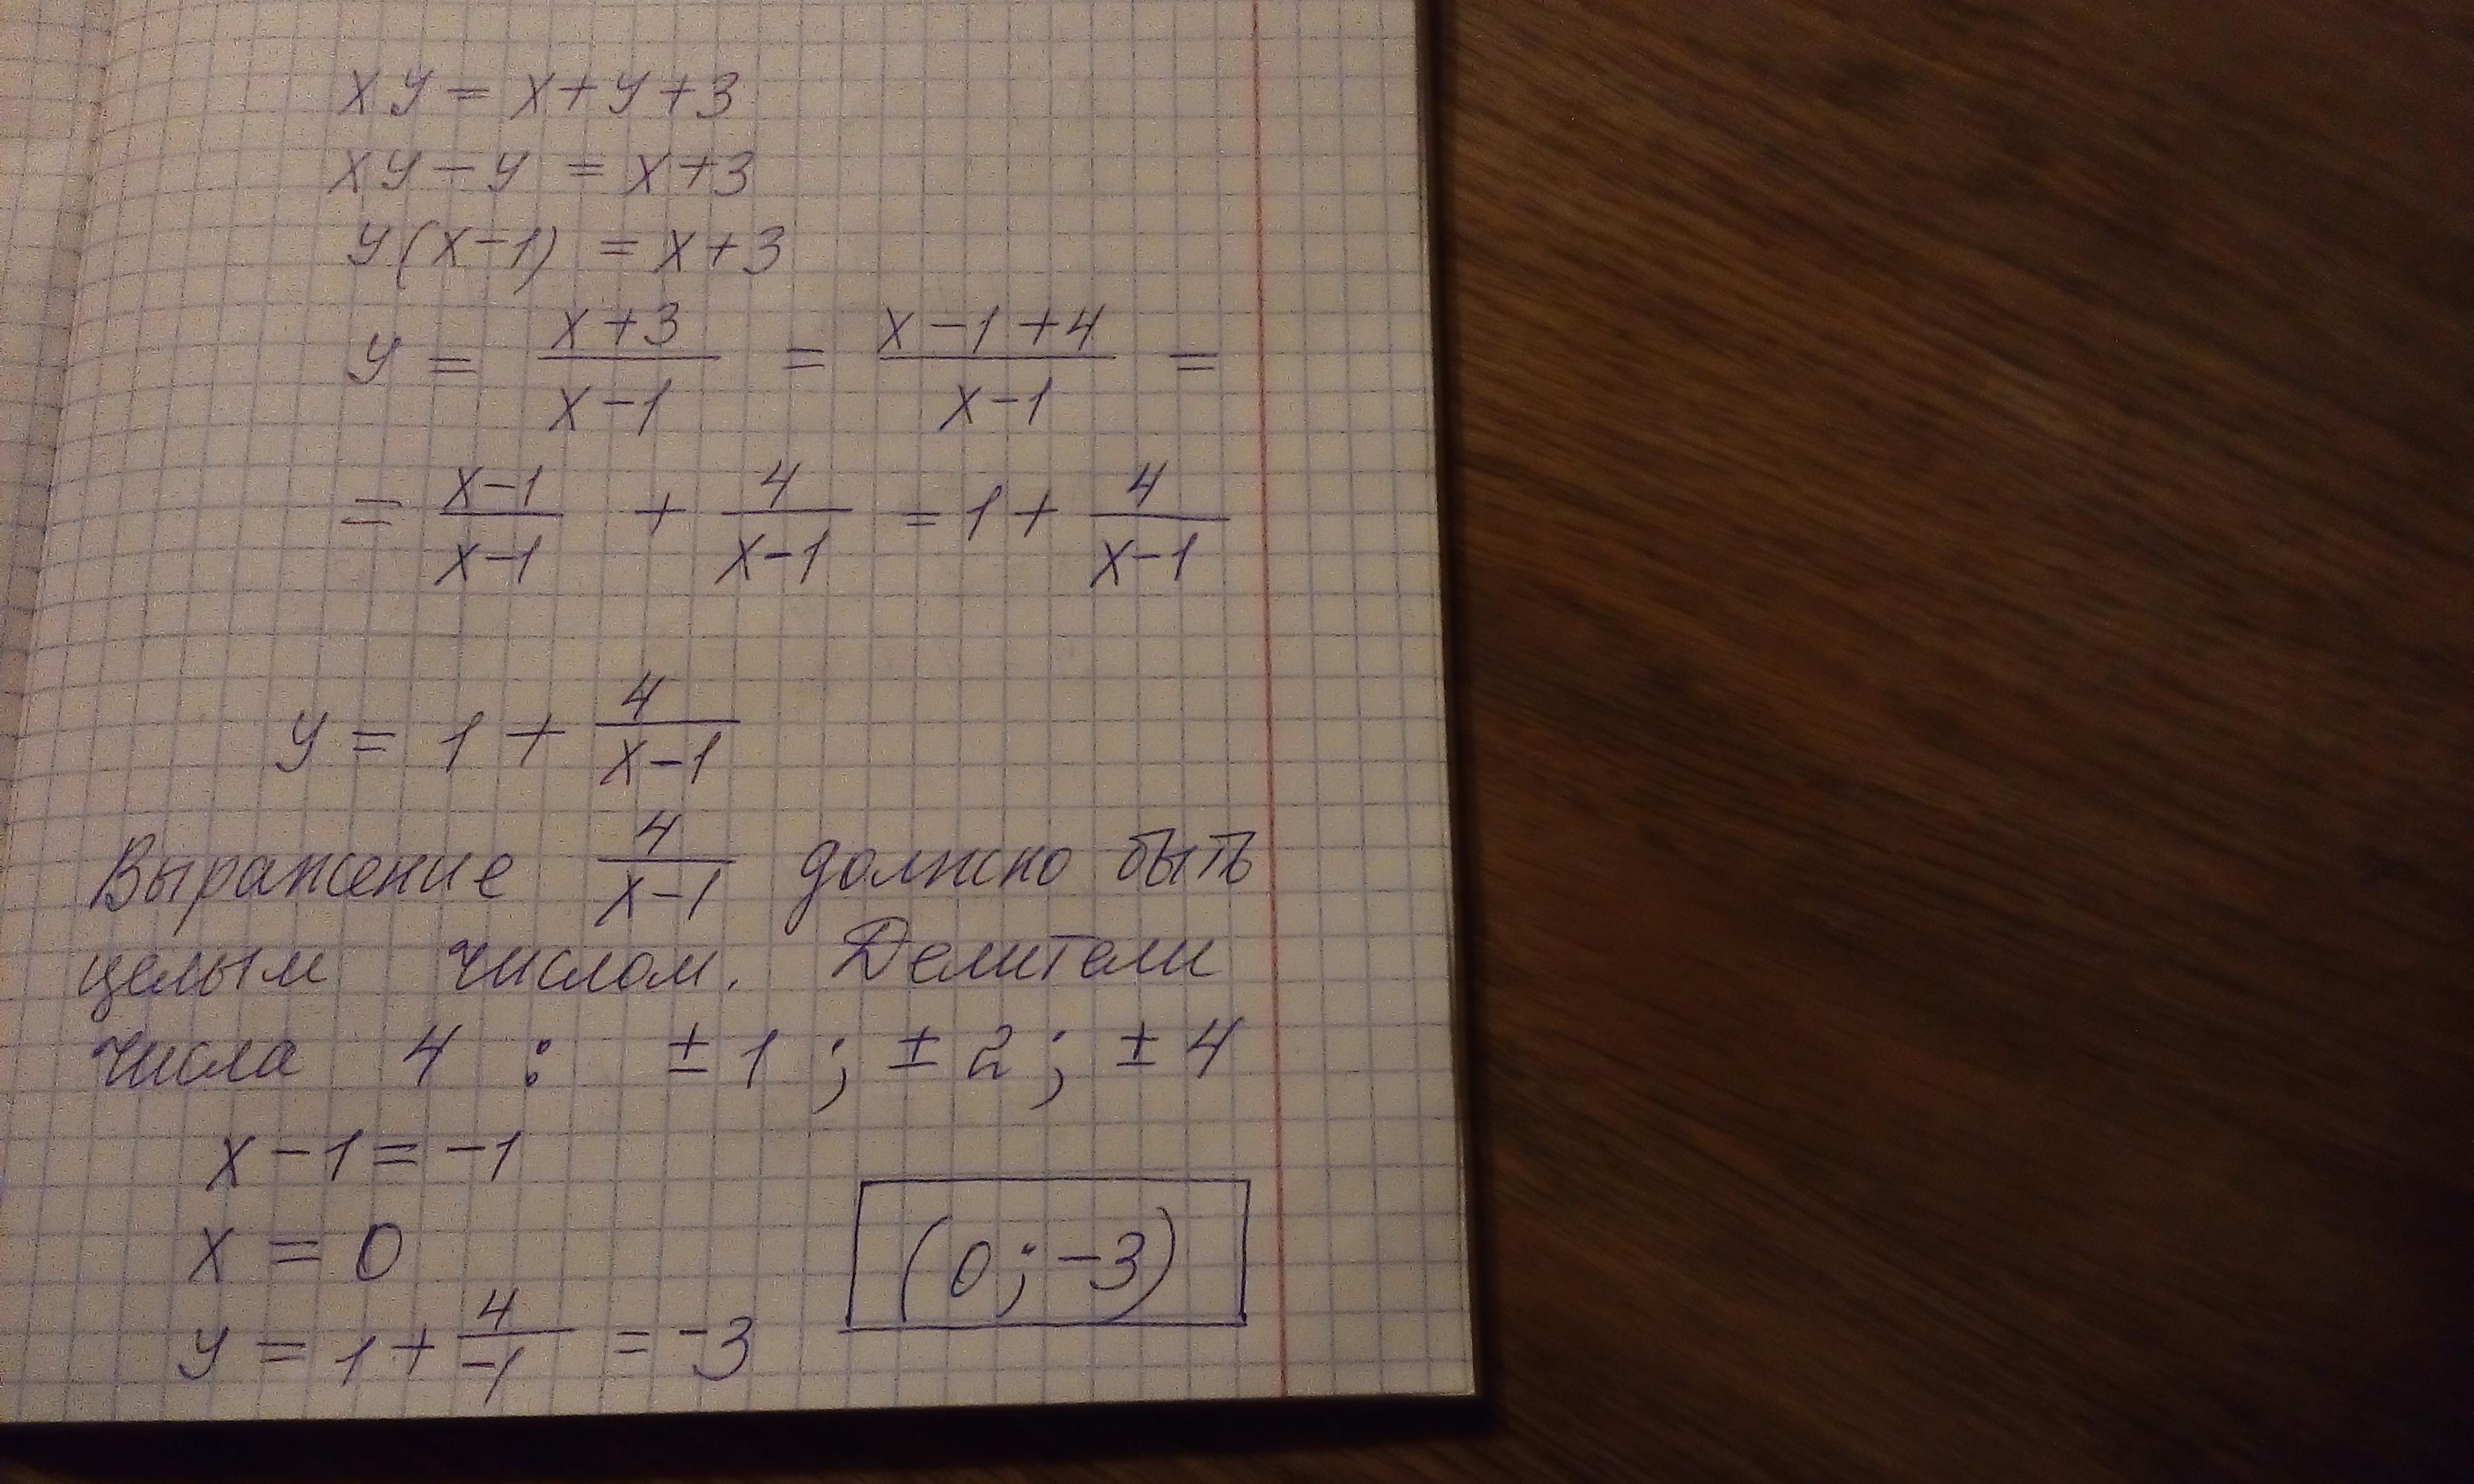 xy = x+y+3
xy-y = x+3
y(x-1) = x+3
y = \frac{x+3}{x-1} = \frac{x-1+4}{x-1} =
= \frac{x-1}{x-1} + \frac{4}{x-1} = 1 + \frac{4}{x-1}
y = 1 + \frac{4}{x-1}
Выражение \frac{4}{x-1} должно быть
целым числом. Делители
числа 4 : ±1 ; ±2 ; ±4
x-1=-1
x = 0
(0;-3)
y = 1+\frac{4}{-1} = -3